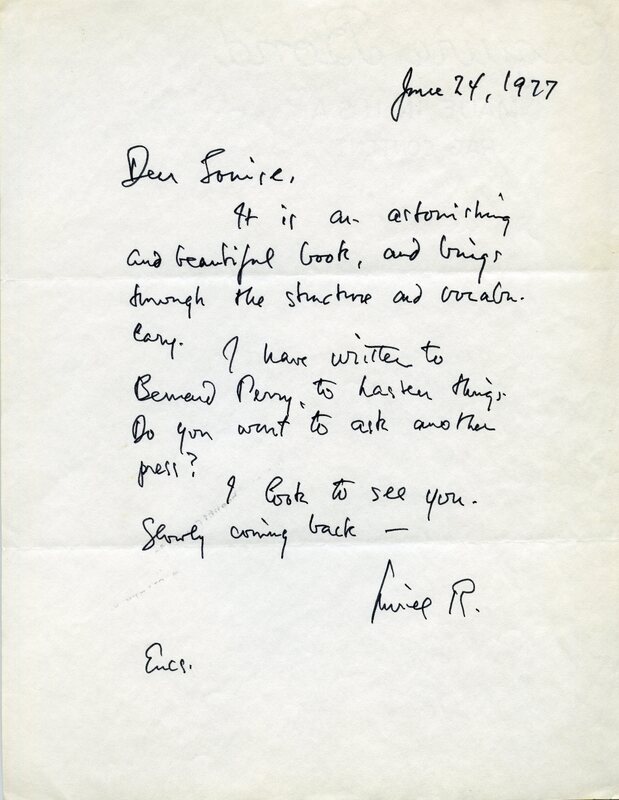 June 24, 1977
Dear Louise,
It is an astonishing
and beautiful book, and brings
through the structure and vocabu-
lary.
I have written to
Bernard Perry, to hasten things.
Do you want to ask another
press?
I look to see you.
Slowly coming back —
Muriel R.
Encs.